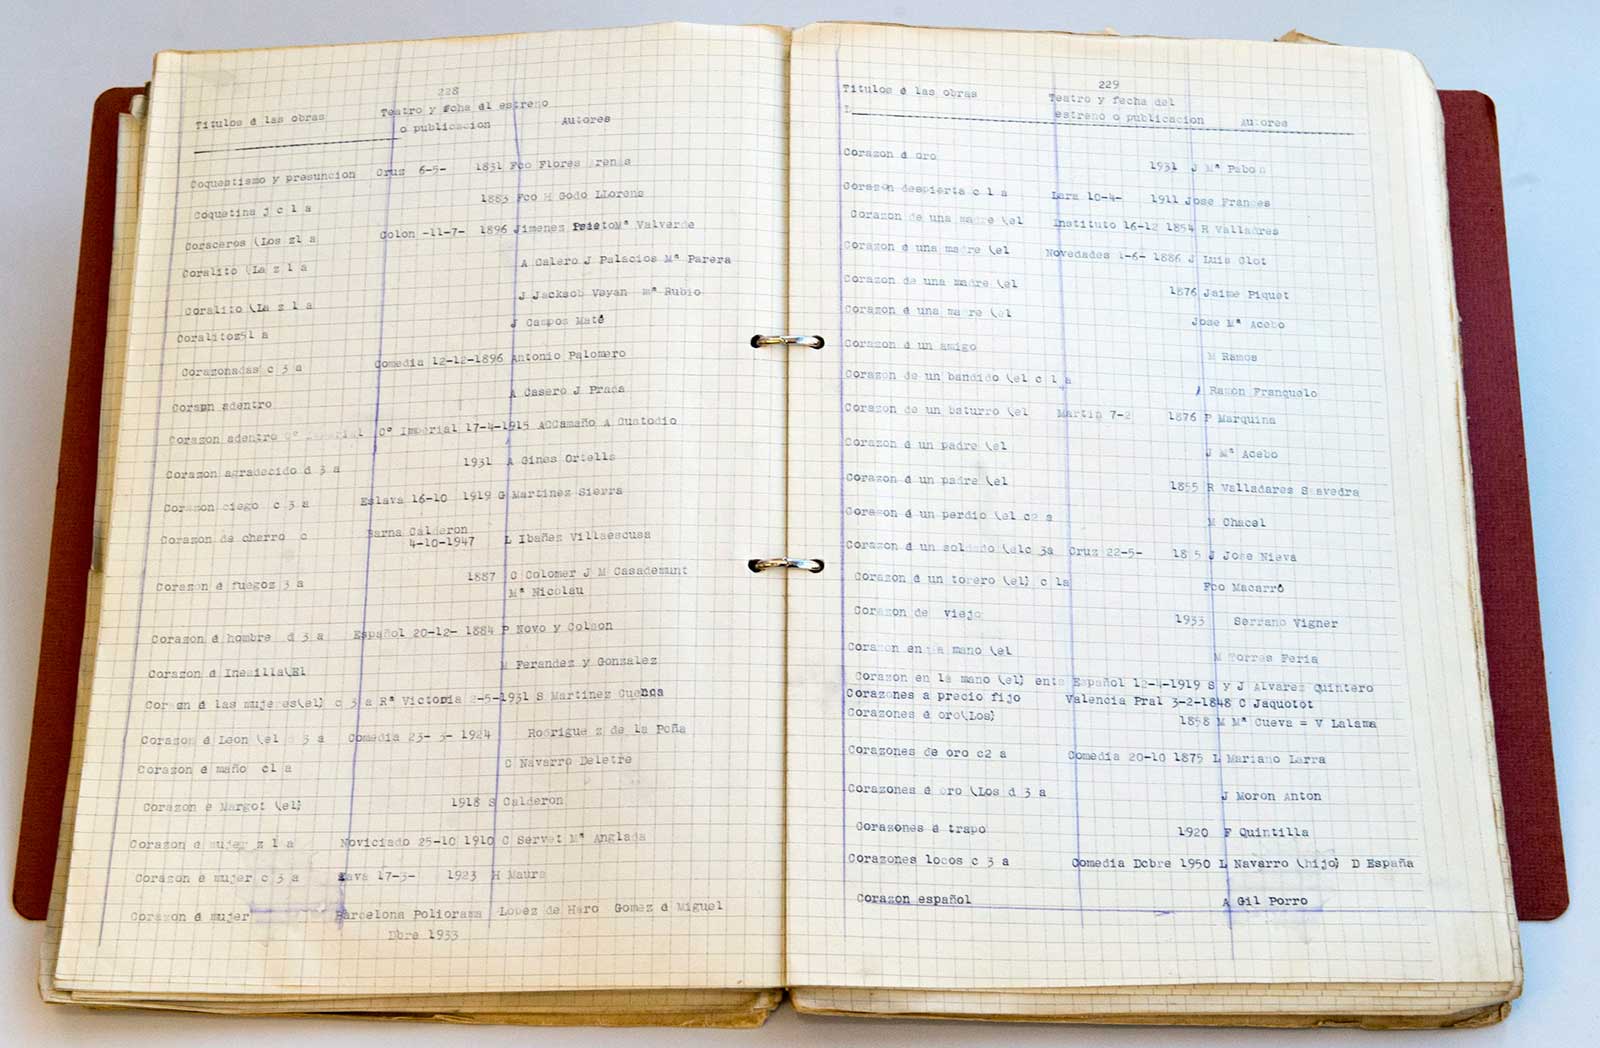 228
Titulos d las obras Teatro y fcha dl estreno
o publicacion Autores
Coquestismo y presuncion Cruz 6-5- 1831 Fco Flores renas
Coquetina j c 1 a 1883 Fco H Godo LLorens
Coraceros (Los z1 a Colon -11-7- 1896 Jimenez Prieto Mª Valverde
Coralito (La z 1 a A Calero J Palacios Mª Parera
Coralito (La z 1 a J Jackson Veyan mª Rubio
Coralitoz51 a J Campos Maté
Corazonadas c 3 a Comedia 12-12-1896 Antonio Palomero
Corazn adentro A Casero J Prada
Corazon adentro Cº Imperial Cº Imperial 17-4-1915 ACCamaño A Custodio
Corazon agradecido d 3 a 1931 A Gines Ortells
Corazon ciego c 3 a Eslava 16-10 1919 G Martinez Sierra
Corazon de cherro c Barna Calderon
4-10-1947 L Ibañez Villaescusa
Corazon d fuegoz 3 a 1887 C Colomer J M Casademunt
Mª Nicolau
Corazon d hombre d 3 a Español 20-12- 1884 P Novo y Colson
Corazon d Inesilla(El M Ferandez y Gonzalez
Corazon d las mujeres(el) c 3 a Rª Victoria 2-5-1931 S Martinez Cuenca
Corazon d Leon (el d 3 a Comedia 23- 3- 1924 Rodrigue z de la Peña
Corazon d maño c1 a C Navarro Deletre
Corazon d Margot (el) 1918 S Calderon
Corazon d mujer z 1 a Noviciado 25-10 1910 C Servet Mª Anglada
Corazon d mujer c 3 a Eava 17-3- 1923 H Maura
Corazon d mujer Barcelona Poliorama Lopez de Haro Gomez d Miguel
Dbre 1933
229
Titulos d las obras Teatro y fecha del
estreno o publicacion Autores
Corazon d oro 1931 J Mª Pabon
Corazon despierta c 1 a Lara 10-4- 1911 Jose Frances
Corazon de una madre (el Instituto 16-12 1854 R Valladres
Corazon d una madre (el Novedades 1-6- 1886 J Luis Clot
Corazon de una madre (el 1876 Jaime Piquet
Corazon d una madre (el Jose Mª Acebo
Corazon d un amigo M Ramos
Corazon de un bandido (el c 1 a Ramon Franquelo
Corazon de un baturro (el Martin 7-2 1876 P Marquina
Corazon d un padre (el J Mª Acebo
Corazon d un padre (el 1855 R Valladares Saavedra
Corazon d un perdio (el c2 a M Chacel
Corazon d un soldado (elc 3a Cruz 22-5- 18 5 J Jose Nieva
Corazon d un torero (el) c 1a Fco Macarrô
Corazon de viejo 1933 Serrano Vigner
Corazon en la mano (el M Torres Feria
Corazon en la mano (el) ents Español 12-4-1919 S y J Alvarez Quintero
Corazones a precio fijo Valencia Pral 3-2-1848 C Jaquotot
Corazones d oro(Los) 1858 M Mª Cueva = V Lalama
Corazones de oro c2 a Comedia 20-10 1875 L Mariano Larra
Corazones d oro (Los d 3 a J Moron Anton
Corazones d trapo 1920 F Quintilla
Corazones locos c 3 a Comedia Dcbre 1950 L Navarro (hijo) D España
Corazon español A Gil Porro